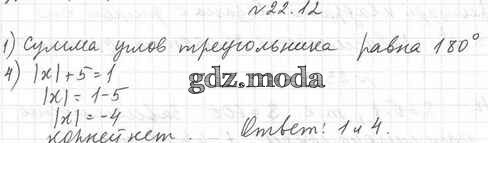 №22.12
1) Сумма углов треугольника равна 180°
4) |x|+5=1
gdz.moda
|x|=1-5
|x|=-4
корней нет. Ответ: 1 и 4.